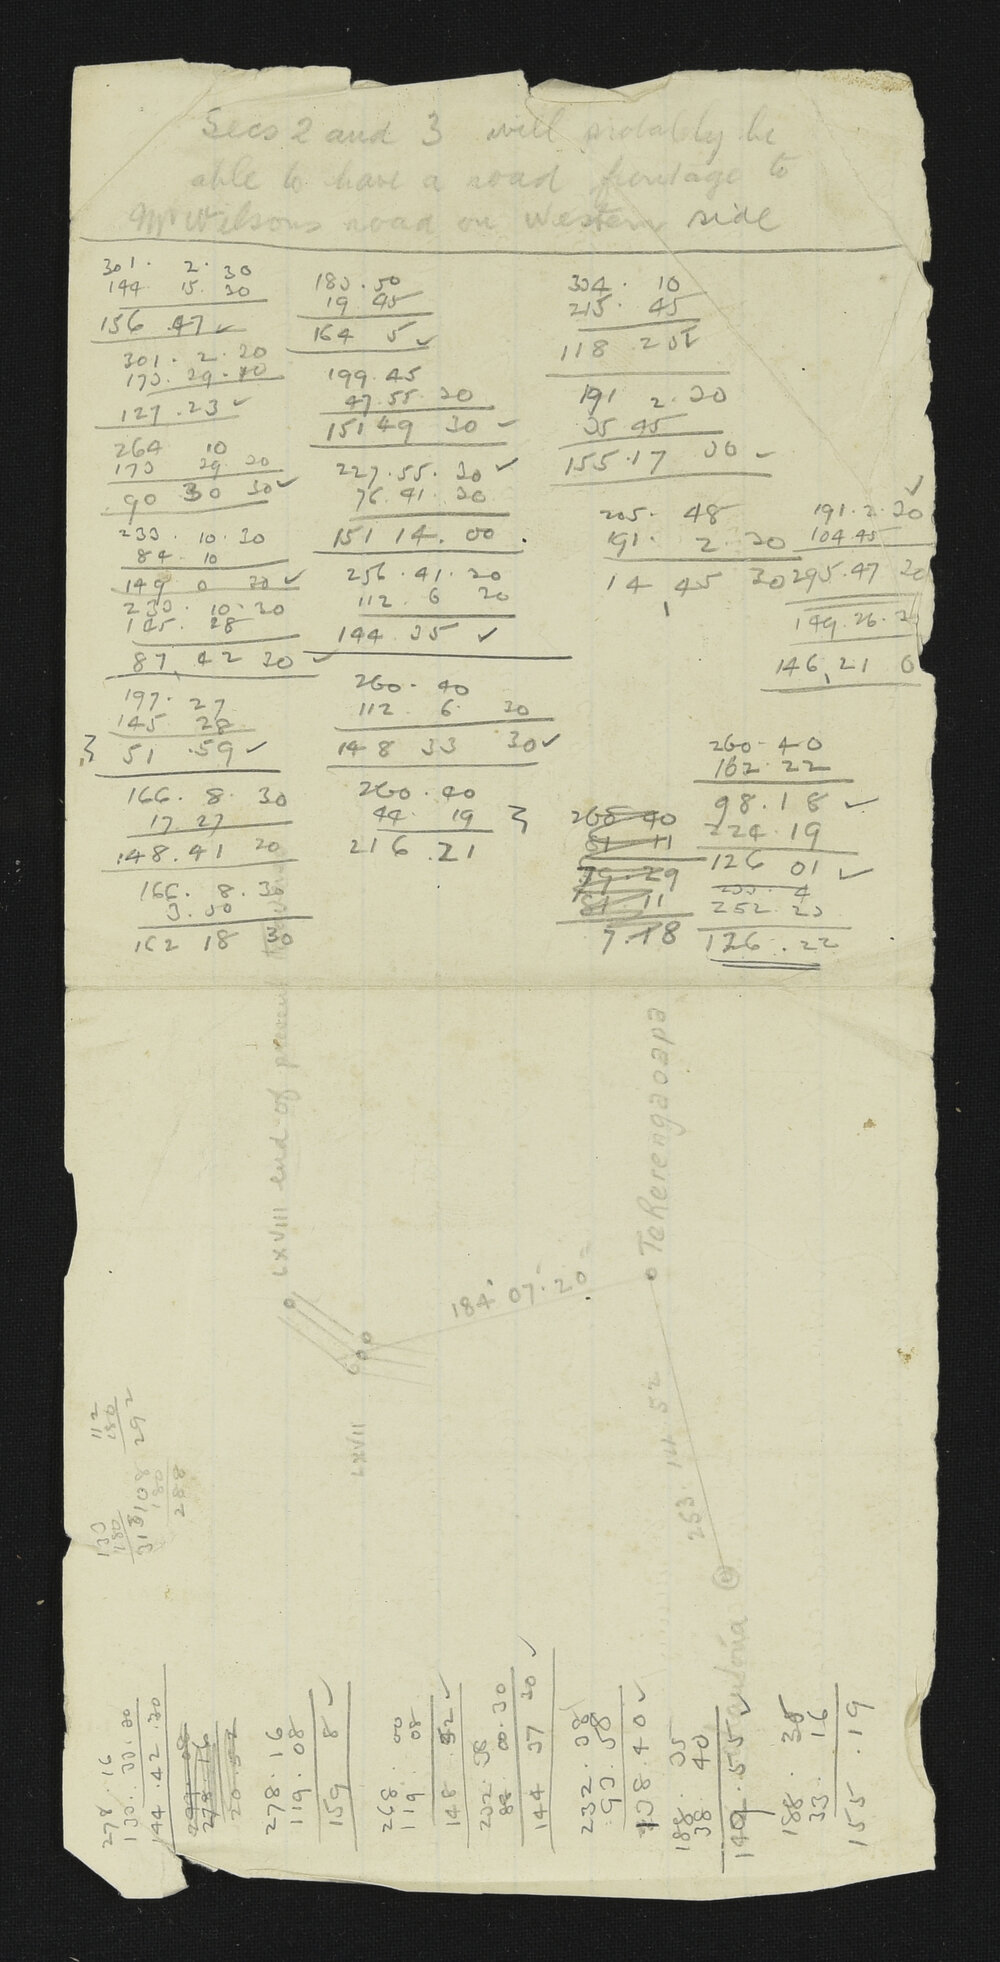 Secs 2 and 3 will probably be
able to have a road frontage to
Mr Wilsons road on Western side
301. 2. 30
144. 15. 30
156 .47 ✓
301. 2. 20
173. 29. 40
127.23 ✓
264 10
173 29 30
90 30 30 ✓
233. 10. 30
84. 10
149 0 30 ✓
233. 10. 30
145. 28
87. 42 30 ✓
197. 27
145 28
51 .59 ✓
166. 8. 30
17.27
148.41 30
166. 8. 30
3. 50
162 18 30
183.50
19 45
164 5 ✓
199.45
47.55.30
151 49 30 ✓
227.55.30 ✓
76.41.30
151 14.00
256.41.30
112 6 30
144.35 ✓
260. 40
112 6. 30
148 33 30 ✓
260.40
44. 19
216.21
334. 10
215. 45
118.25
191 2.30
35 45
155.17 30 ✓
205. 48
191. 2 30
14,45 30
191.2.30
104.45
295.47 30
149.26.3
146,21 0
260.40
162.22
98.18 ✓
224.19
126 01 ✓
252.23
126.22
260 40
81 11
79.29
81.11
7.18
LXVIII end of present
Tekerengaoapa
184° 07' 20"
LXVII
253. 14. 52
112
180
292
108
180
288
133
180
313
278.16
133.33.30
144.42.30
278.16
20 52
278.16
119.08
159 8 ✓
268.00
119 08
148.52 ✓
232.38
88 00.30
144 37 30 ✓
232.38
93.58
138.40 ✓
188.35
38.40
149.55 ✓
188.35
33.16
155.19